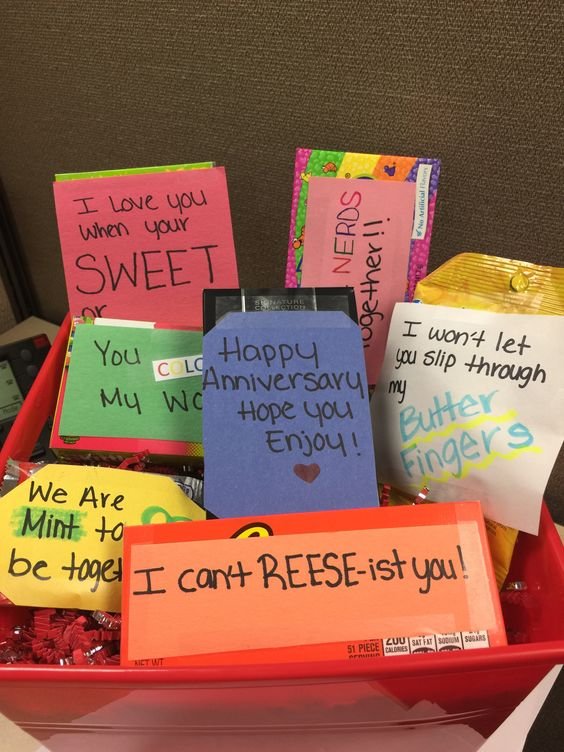 I Love you
when your
SWEET
or
NERDS
together!!
No Artificial Flavors
SIGNATURE
COLLECTION
You COLO
My WO
Happy
Anniversary
Hope you
Enjoy!
I won't let
you slip through
my
Butter
Fingers
We Are
Mint to
be toget
I can't REESE-ist you!
NET WT
51 PIECE
200
CALORIES
SAT FAT
SODIUM
SUGARS